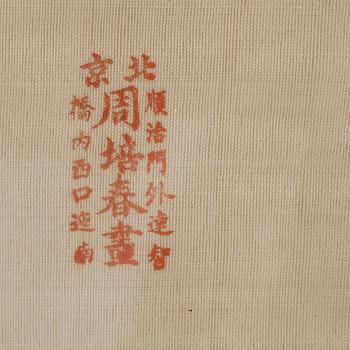 北京
順治門外達智
周培春畫
橋內西口迤南